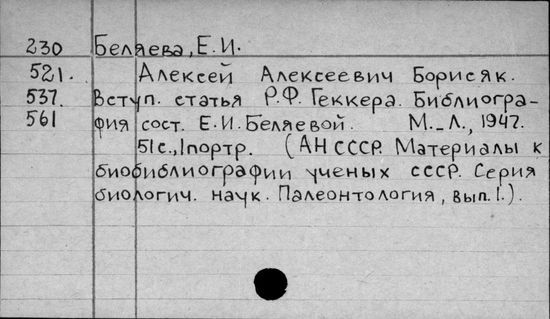 230 Беляева, Е.И.
521. Алексей Алексеевич Борисяк.
537. Вступ. статья Р.Ф. Геккера. Библиогра-
561 фия сост. Е.И. Беляевой. М.-Л., 1947.
51с., 1портр. (АН СССР. Материалы к
биобиблиографии ученых СССР. Серия
биологич. наук. Палеонтология, вып. 1.).